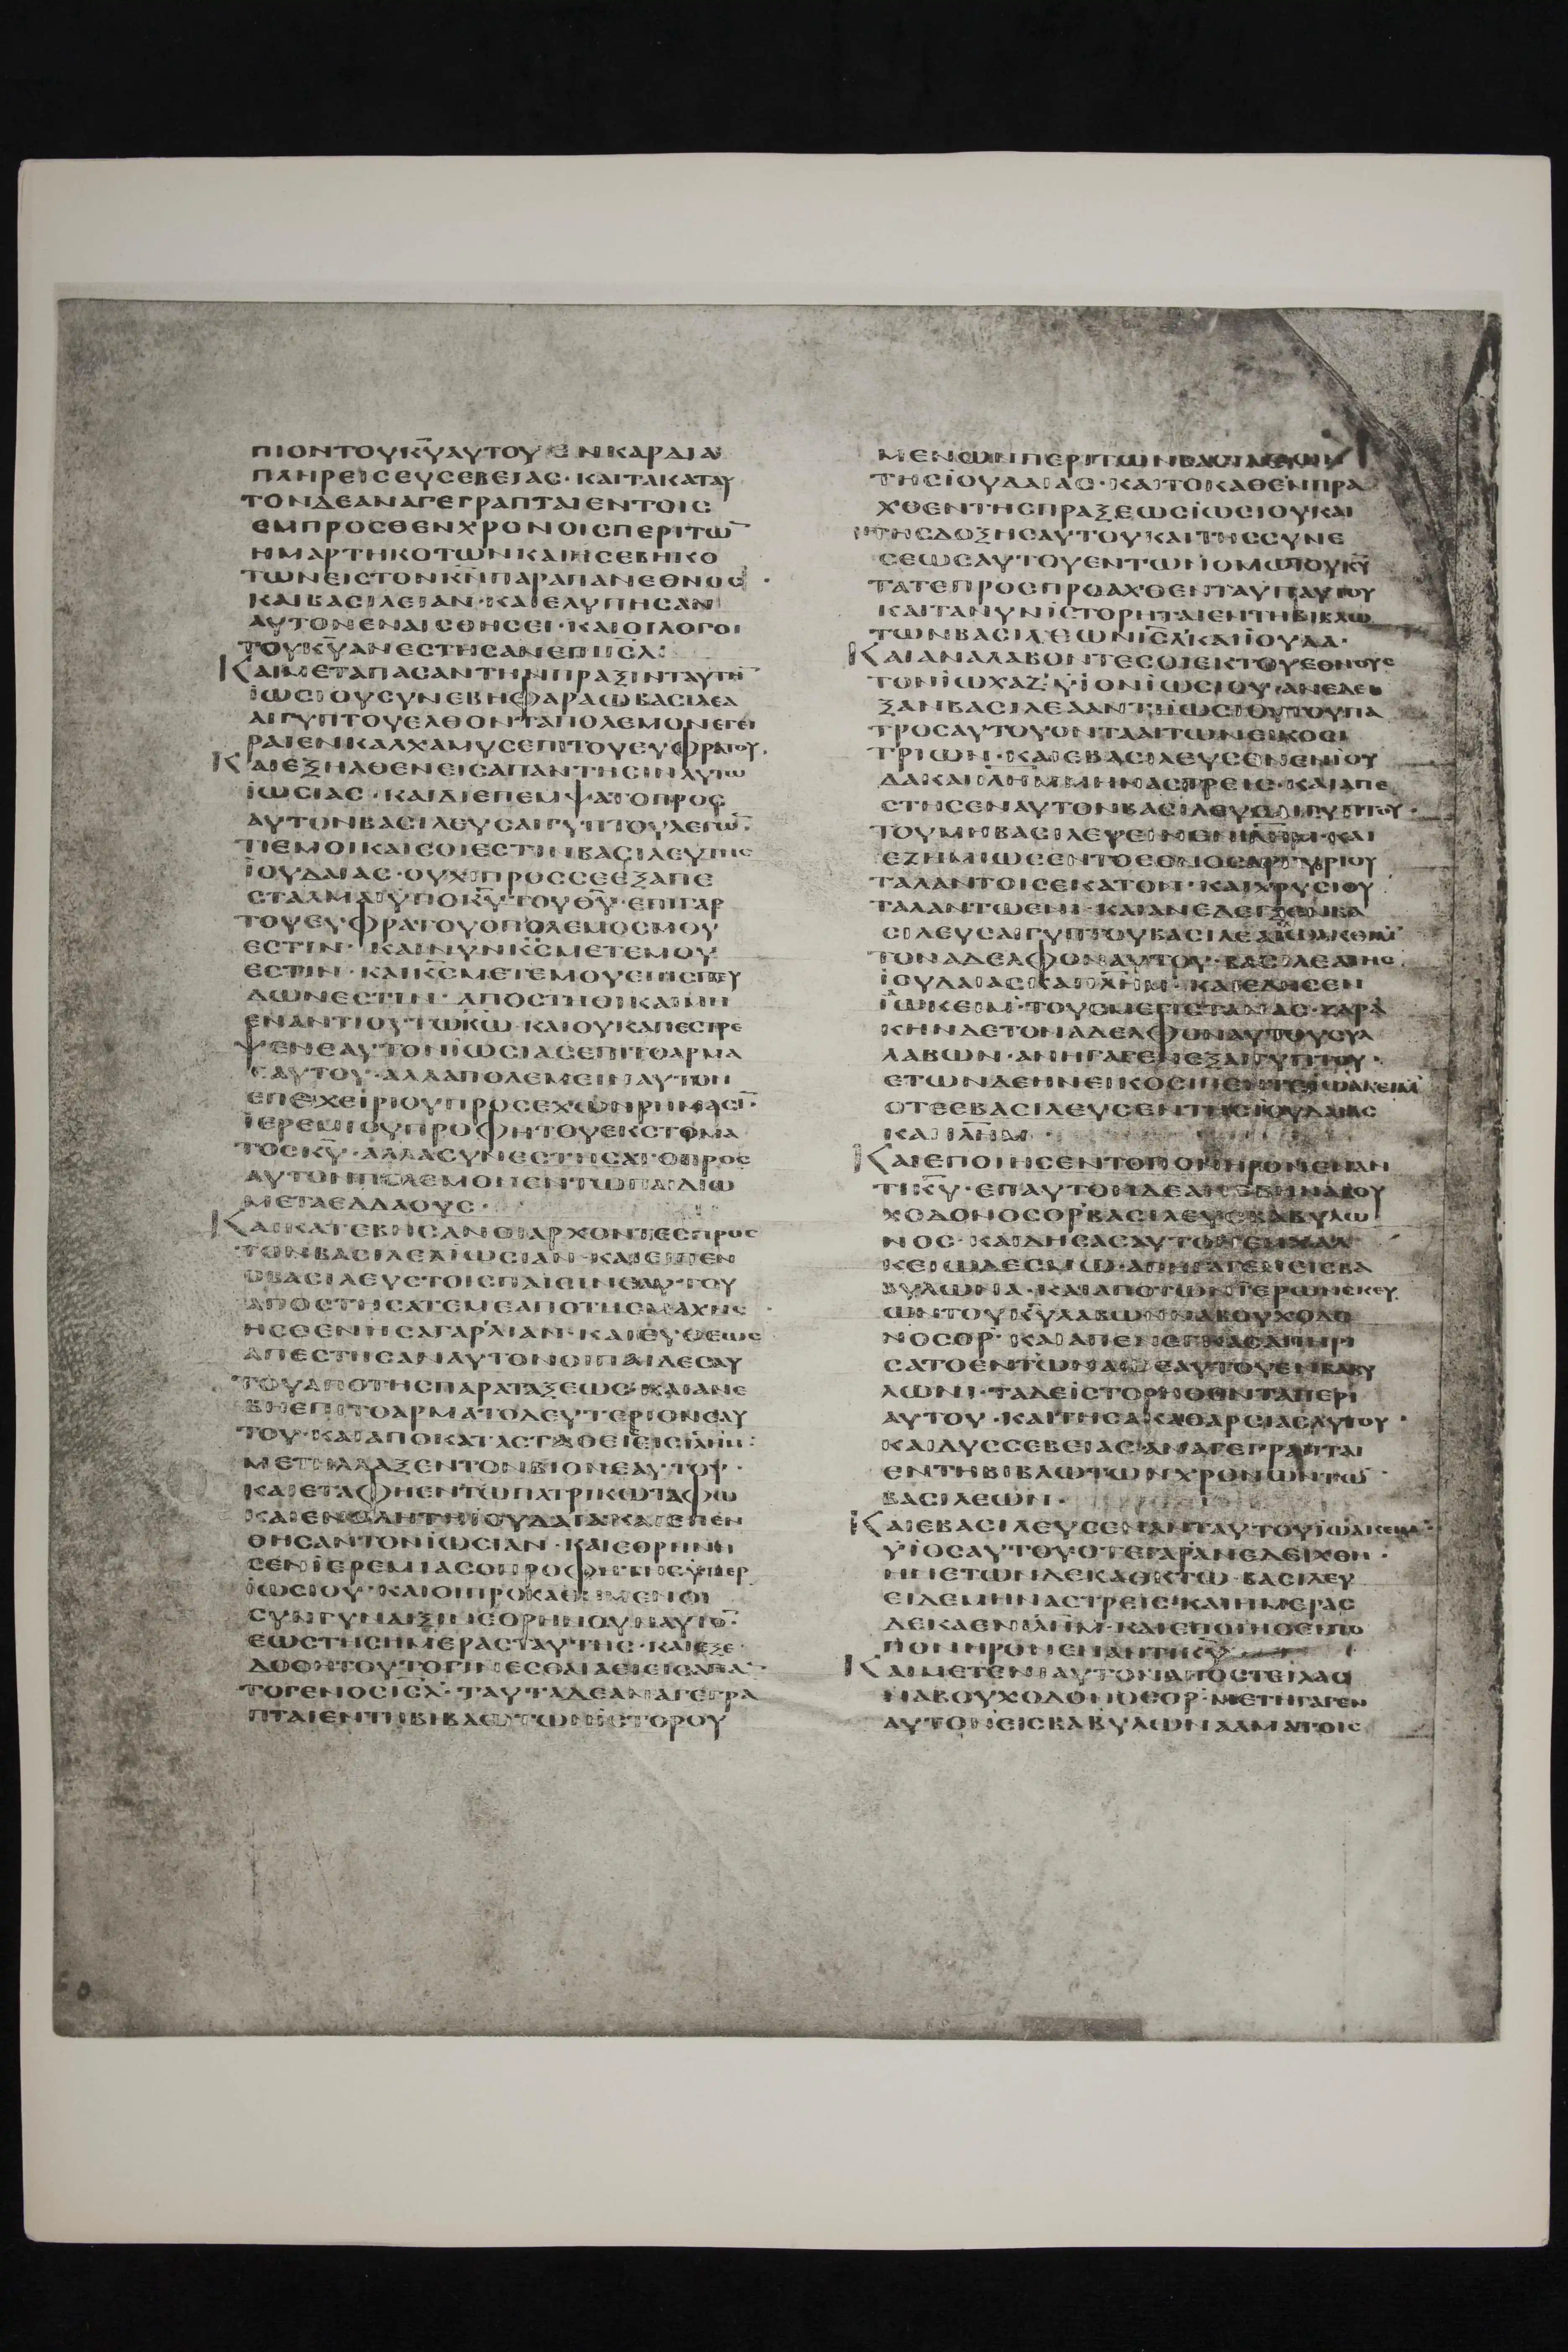 ΠΙΟΝΤΟΥΚ̅Υ̅ΑΥΤΟΥΕΝΚΑΡΔΙΑ
ΠΛΗΡΕΙΣΕΥΣΕΒΕΙΑΣ·ΚΑΙΤΑΚΑΤΑΥ
ΤΟΝΔΕΑΝΑΓΕΓΡΑΠΤΑΙΕΝΤΟΙΣ
ΕΜΠΡΟΣΘΕΝΧΡΟΝΟΙΣΠΕΡΙΤΩ̅
ΗΜΑΡΤΗΚΟΤΩΝΚΑΙΗΣΕΒΗΚΟ
ΤΩΝΕΙΣΤΟΝΚ̅Ν̅ΠΑΡΑΠΑΝΕΘΝΟΣ·
ΚΑΙΒΑΣΙΛΕΙΑΝ·ΚΑΙΕΛΥΠΗΣΑΝ
ΑΥΤΟΝΕΝΑΙΣΘΗΣΕΙ·ΚΑΙΟΙΛΟΓΟΙ
ΤΟΥΚ̅Υ̅ΑΝΕΣΤΗΣΑΝΕΠΙΙ̅Σ̅Λ̅:
ΚΑΙΜΕΤΑΠΑΣΑΝΤΗΝΠΡΑΞΙΝΤΑΥΤΗ̅
ΙΩΣΙΟΥΣΥΝΕΒΗΦΑΡΑΩΒΑΣΙΛΕΑ
ΑΙΓΥΠΤΟΥΕΛΘΟΝΤΑΠΟΛΕΜΟΝΕΓΕΙ
ΡΑΙΕΝΚΑΛΧΑΜΥΣΕΠΙΤΟΥΕΥΦΡΑΤΟΥ.
ΚΑΙΕΞΗΛΘΕΝΕΙΣΑΠΑΝΤΗΣΙΝΑΥΤΩ
ΙΩΣΙΑΣ·ΚΑΙΔΙΕΠΕΜΨΑΤΟΠΡΟΣ
ΑΥΤΟΝΒΑΣΙΛΕΥΣΑΙΓΥΠΤΟΥΛΕΓΩ̅·
ΤΙΕΜΟΙΚΑΙΣΟΙΕΣΤΙΝΒΑΣΙΛΕΥΤΗΣ
ΙΟΥΔΑΙΑΣ·ΟΥΧΙΠΡΟΣΣΕΕΞΑΠΕ
ΣΤΑΛΜΑΙΥΠΟΚ̅Υ̅ΤΟΥΘ̅Υ̅·ΕΠΙΓΑΡ
ΤΟΥΕΥΦΡΑΤΟΥΟΠΟΛΕΜΟΣΜΟΥ
ΕΣΤΙΝ·ΚΑΙΝΥΝΚ̅Σ̅ΜΕΤΕΜΟΥ
ΕΣΤΙΝ·ΚΑΙΚ̅Σ̅ΜΕΤΕΜΟΥΕΠΙΣΠΕΥ
ΔΩΝΕΣΤΙΝ·ΑΠΟΣΤΗΘΙΚΑΙΜΗ
ΕΝΑΝΤΙΟΥΤΩΚ̅Ω̅·ΚΑΙΟΥΚΑΠΕΣΤΡΕ
ΨΕΝΕΑΥΤΟΝΙΩΣΙΑΣΕΠΙΤΟΑΡΜΑ
ΕΑΥΤΟΥ·ΑΛΛΑΠΟΛΕΜΕΙΝΑΥΤΟΝ
ΕΠΕΧΕΙΡΙΟΥΠΡΟΣΕΧΩΝΡΗΜΑΣΙ̅·
ΙΕΡΕΜΙΟΥΠΡΟΦΗΤΟΥΕΚΣΤΟΜΑ
ΤΟΣΚ̅Υ̅·ΑΛΛΑΣΥΝΕΣΤΗΣΑΤΟΠΡΟΣ
ΑΥΤΟΝΠΟΛΕΜΟΝΕΝΤΩΠΑΙΔΙΩ
ΜΕΤΑΕΔΔΑΟΥΣ·
ΚΑΙΚΑΤΕΒΗΣΑΝΟΙΑΡΧΟΝΤΕΣΠΡΟΣ
ΤΟΝΒΑΣΙΛΕΑΙΩΣΙΑΝ·ΚΑΙΕΙΠΕΝ
ΟΒΑΣΙΛΕΥΣΤΟΙΣΠΑΙΣΙΝΕΑΥΤΟΥ
ΑΠΟΣΤΗΣΑΤΕΜΕΑΠΟΤΗΣΜΑΧΗΣ
ΗΣΘΕΝΗΣΑΓΑΡΛΙΑΝ·ΚΑΙΕΥΘΕΩΣ
ΑΠΕΣΤΗΣΑΝΑΥΤΟΝΟΙΠΑΙΔΕΣΑΥ
ΤΟΥΑΠΟΤΗΣΠΑΡΑΤΑΞΕΩΣ·ΚΑΙΑΝΕ
ΒΗΕΠΙΤΟΑΡΜΑΤΟΔΕΥΤΕΡΙΟΝΕΑΥ
ΤΟΥ·ΚΑΙΑΠΟΚΑΤΑΣΤΑΘΕΙΣΕΙΣΙ̅Λ̅Η̅Μ̅:
ΜΕΤΗΛΛΑΞΕΝΤΟΝΒΙΟΝΕΑΥΤΟΥ·
ΚΑΙΕΤΑΦΗΕΝΤΩΠΑΤΡΙΚΩΤΑΦΩ
ΚΑΙΕΝΟΛΗΤΗΙΟΥΔΑΙΑΚΑΙΕΠΕΝ
ΘΗΣΑΝΤΟΝΙΩΣΙΑΝ·ΚΑΙΕΘΡΗΝΗ
ΣΕΝΙΕΡΕΜΙΑΣΟΠΡΟΦΗΤΗΣΥΠΕΡ
ΙΩΣΙΟΥ·ΚΑΙΟΙΠΡΟΚΑΘΗΜΕΝΟΙ
ΣΥΝΓΥΝΑΙΞΙΝΕΘΡΗΝΟΥΝΑΥΤΟ̅·
ΕΩΣΤΗΣΗΜΕΡΑΣΤΑΥΤΗΣ·ΚΑΙΕΞΕ
ΔΟΘΗΤΟΥΤΟΓΙΝΕΣΘΑΙΑΕΙΕΙΣΑΠΑ̅·
ΤΟΓΕΝΟΣΙ̅Σ̅Λ̅·ΤΑΥΤΑΔΕΑΝΑΓΕΓΡΑ
ΠΤΑΙΕΝΤΗΒΙΒΛΩΤΩΝΙΣΤΟΡΟΥ
ΜΕΝΩΝΠΕΡΙΤΩΝΒΑΣΙΛΕΩΝ
ΤΗΣΙΟΥΔΑΙΑΣ·ΚΑΙΤΟΚΑΘΕΝΠΡΑ
ΧΘΕΝΤΗΣΠΡΑΞΕΩΣΙΩΣΙΟΥΚΑΙ
ΤΗΣΔΟΞΗΣΑΥΤΟΥΚΑΙΤΗΣΣΥΝΕ
ΣΕΩΣΑΥΤΟΥΕΝΤΩΝΟΜΩΤΟΥΚ̅Υ̅
ΤΑΤΕΠΡΟΣΠΡΟΑΧΘΕΝΤΑΥΠΑΥΤΟΥ
ΚΑΙΤΑΝΥΝΙΣΤΟΡΗΤΑΙΕΝΤΗΒΙΒΛΩ
ΤΩΝΒΑΣΙΛΕΩΝΙ̅Σ̅Λ̅ΚΑΙΙΟΥΔΑ·
ΚΑΙΑΝΑΛΑΒΟΝΤΕΣΟΙΕΚΤΟΥΕΘΝΟΥΣ
ΤΟΝΙΩΧΑΖ·ΥΙΟΝΙΩΣΙΟΥ·ΑΝΕΔΕΙ
ΞΑΝΒΑΣΙΛΕΑΑΝΤΙΙΩΣΙΟΥΤΟΥΠΑ
ΤΡΟΣΑΥΤΟΥΟΝΤΑΑΙΤΩΝΕΙΚΟΣΙ
ΤΡΙΩΝ·ΚΑΙΕΒΑΣΙΛΕΥΣΕΝΕΝΙΟΥ
ΔΑΚΑΙΙ̅Λ̅Η̅Μ̅ΜΗΝΑΣΤΡΕΙΣ·ΚΑΙΑΠΕ
ΣΤΗΣΕΝΑΥΤΟΝΒΑΣΙΛΕΥΣΑΙΓΥΠΤΟΥ·
ΤΟΥΜΗΒΑΣΙΛΕΥΕΙΝΕΝΙ̅Λ̅Η̅Μ̅·ΚΑΙ
ΕΖΗΜΙΩΣΕΝΤΟΕΘΝΟΣΑΡΓΥΡΙΟΥ
ΤΑΛΑΝΤΟΙΣΕΚΑΤΟΝ·ΚΑΙΧΡΥΣΙΟΥ
ΤΑΛΑΝΤΩΕΝΙ·ΚΑΙΑΝΕΔΕΙΞΕΝΒΑ
ΣΙΛΕΥΣΑΙΓΥΠΤΟΥΒΑΣΙΛΕΑΙΩΑΚΕΙΜ
ΤΟΝΑΔΕΛΦΟΝΑΥΤΟΥ·ΒΑΣΙΛΕΑΤΗΣ
ΙΟΥΔΑΙΑΣΚΑΙΙ̅Λ̅Η̅Μ̅·ΚΑΙΕΔΗΣΕΝ
ΙΩΚΕΙΜ·ΤΟΥΣΜΕΓΙΣΤΑΝΑΣ·ΖΑΡΑ
ΚΗΝΔΕΤΟΝΑΔΕΛΦΟΝΑΥΤΟΥΣΥΛ
ΛΑΒΩΝ·ΑΝΗΓΑΓΕΝΕΞΑΙΓΥΠΤΟΥ·
ΕΤΩΝΔΕΗΝΕΙΚΟΣΙΠΕΝΤΕΙΩΑΚΕΙΜ
ΟΤΕΕΒΑΣΙΛΕΥΣΕΝΤΗΣΙΟΥΔΑΙΑΣ
ΚΑΙΙ̅Λ̅Η̅Μ̅·
ΚΑΙΕΠΟΙΗΣΕΝΤΟΠΟΝΗΡΟΝΕΝΑΝ
ΤΙΚ̅Υ̅·ΕΠΑΥΤΟΝΔΕΑΝΕΒΗΝΑΒΟΥ
ΧΟΔΟΝΟΣΟΡΒΑΣΙΛΕΥΣΒΑΒΥΛΩ
ΝΟΣ·ΚΑΙΔΗΣΑΣΑΥΤΟΝΕΝΧΑΛ
ΚΕΙΩΔΕΣΜΩ·ΑΠΗΓΑΓΕΝΕΙΣΒΑ
ΒΥΛΩΝΑ·ΚΑΙΑΠΟΤΩΝΙΕΡΩΝΣΚΕΥ
ΩΝΤΟΥΚ̅Υ̅ΛΑΒΩΝΝΑΒΟΥΧΟΔΟ
ΝΟΣΟΡ·ΚΑΙΑΠΕΝΕΓΚΑΣΑΠΗΡΙ
ΣΑΤΟΕΝΤΩΝΑΩΕΑΥΤΟΥΕΝΒΑΒΥ
ΛΩΝΙ·ΤΑΔΕΙΣΤΟΡΗΘΕΝΤΑΠΕΡΙ
ΑΥΤΟΥ·ΚΑΙΤΗΣΑΚΑΘΑΡΣΙΑΣΑΥΤΟΥ·
ΚΑΙΔΥΣΣΕΒΕΙΑΣ·ΑΝΑΓΕΓΡΑΠΤΑΙ
ΕΝΤΗΒΙΒΛΩΤΩΝΧΡΟΝΩΝΤΩ̅
ΒΑΣΙΛΕΩΝ·
ΚΑΙΕΒΑΣΙΛΕΥΣΕΝΑΝΤΑΥΤΟΥΙΩΑΚΕΙΜ·
ΥΙΟΣΑΥΤΟΥΟΤΕΓΑΡΑΝΕΔΕΙΧΘΗ·
ΗΝΕΤΩΝΔΕΚΑΟΚΤΩ·ΒΑΣΙΛΕΥ
ΕΙΔΕΜΗΝΑΣΤΡΕΙΣΚΑΙΗΜΕΡΑΣ
ΔΕΚΑΕΝΙ̅Λ̅Η̅Μ̅·ΚΑΙΕΠΟΙΗΣΕΙΤΟ
ΠΟΝΗΡΟΝΕΝΑΝΤΙΚ̅Υ̅
ΚΑΙΜΕΤΕΝΙΑΥΤΟΝΑΠΟΣΤΕΙΛΑΣ
ΝΑΒΟΥΧΟΔΟΝΟΣΟΡ·ΜΕΤΗΓΑΓΕΝ
ΑΥΤΟΝΕΙΣΒΑΒΥΛΩΝΑΑΜΑΤΟΙΣ